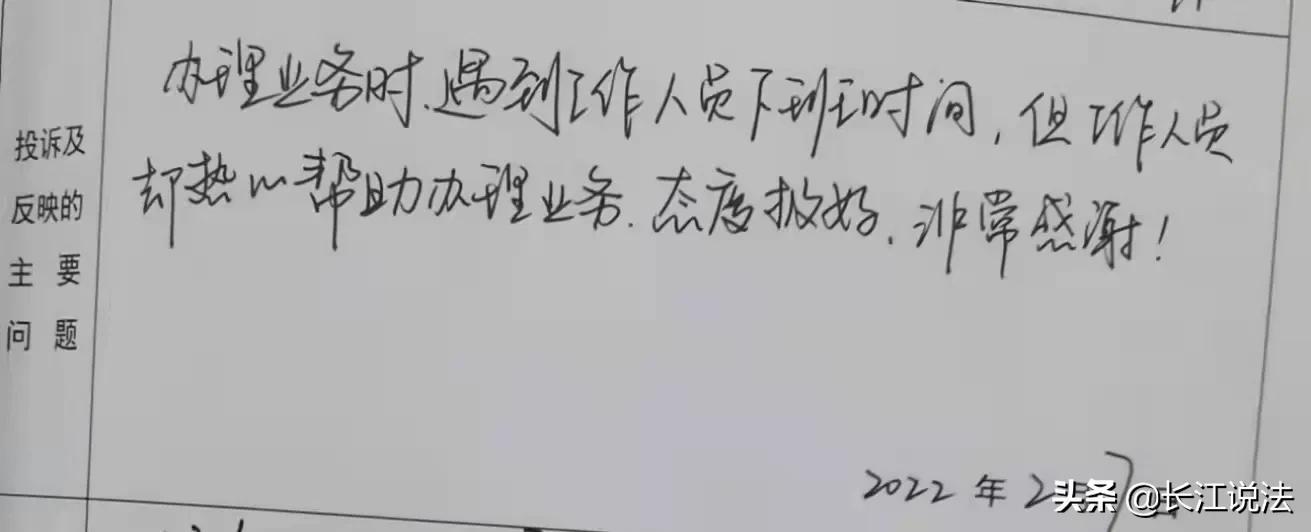 投诉及
反映的
主 要
问 题
办理业务时、遇到工作人员下班时间,但工作人员
却热心帮助办理业务、态度极好、非常感谢!
2022年2
头条 @长江说法